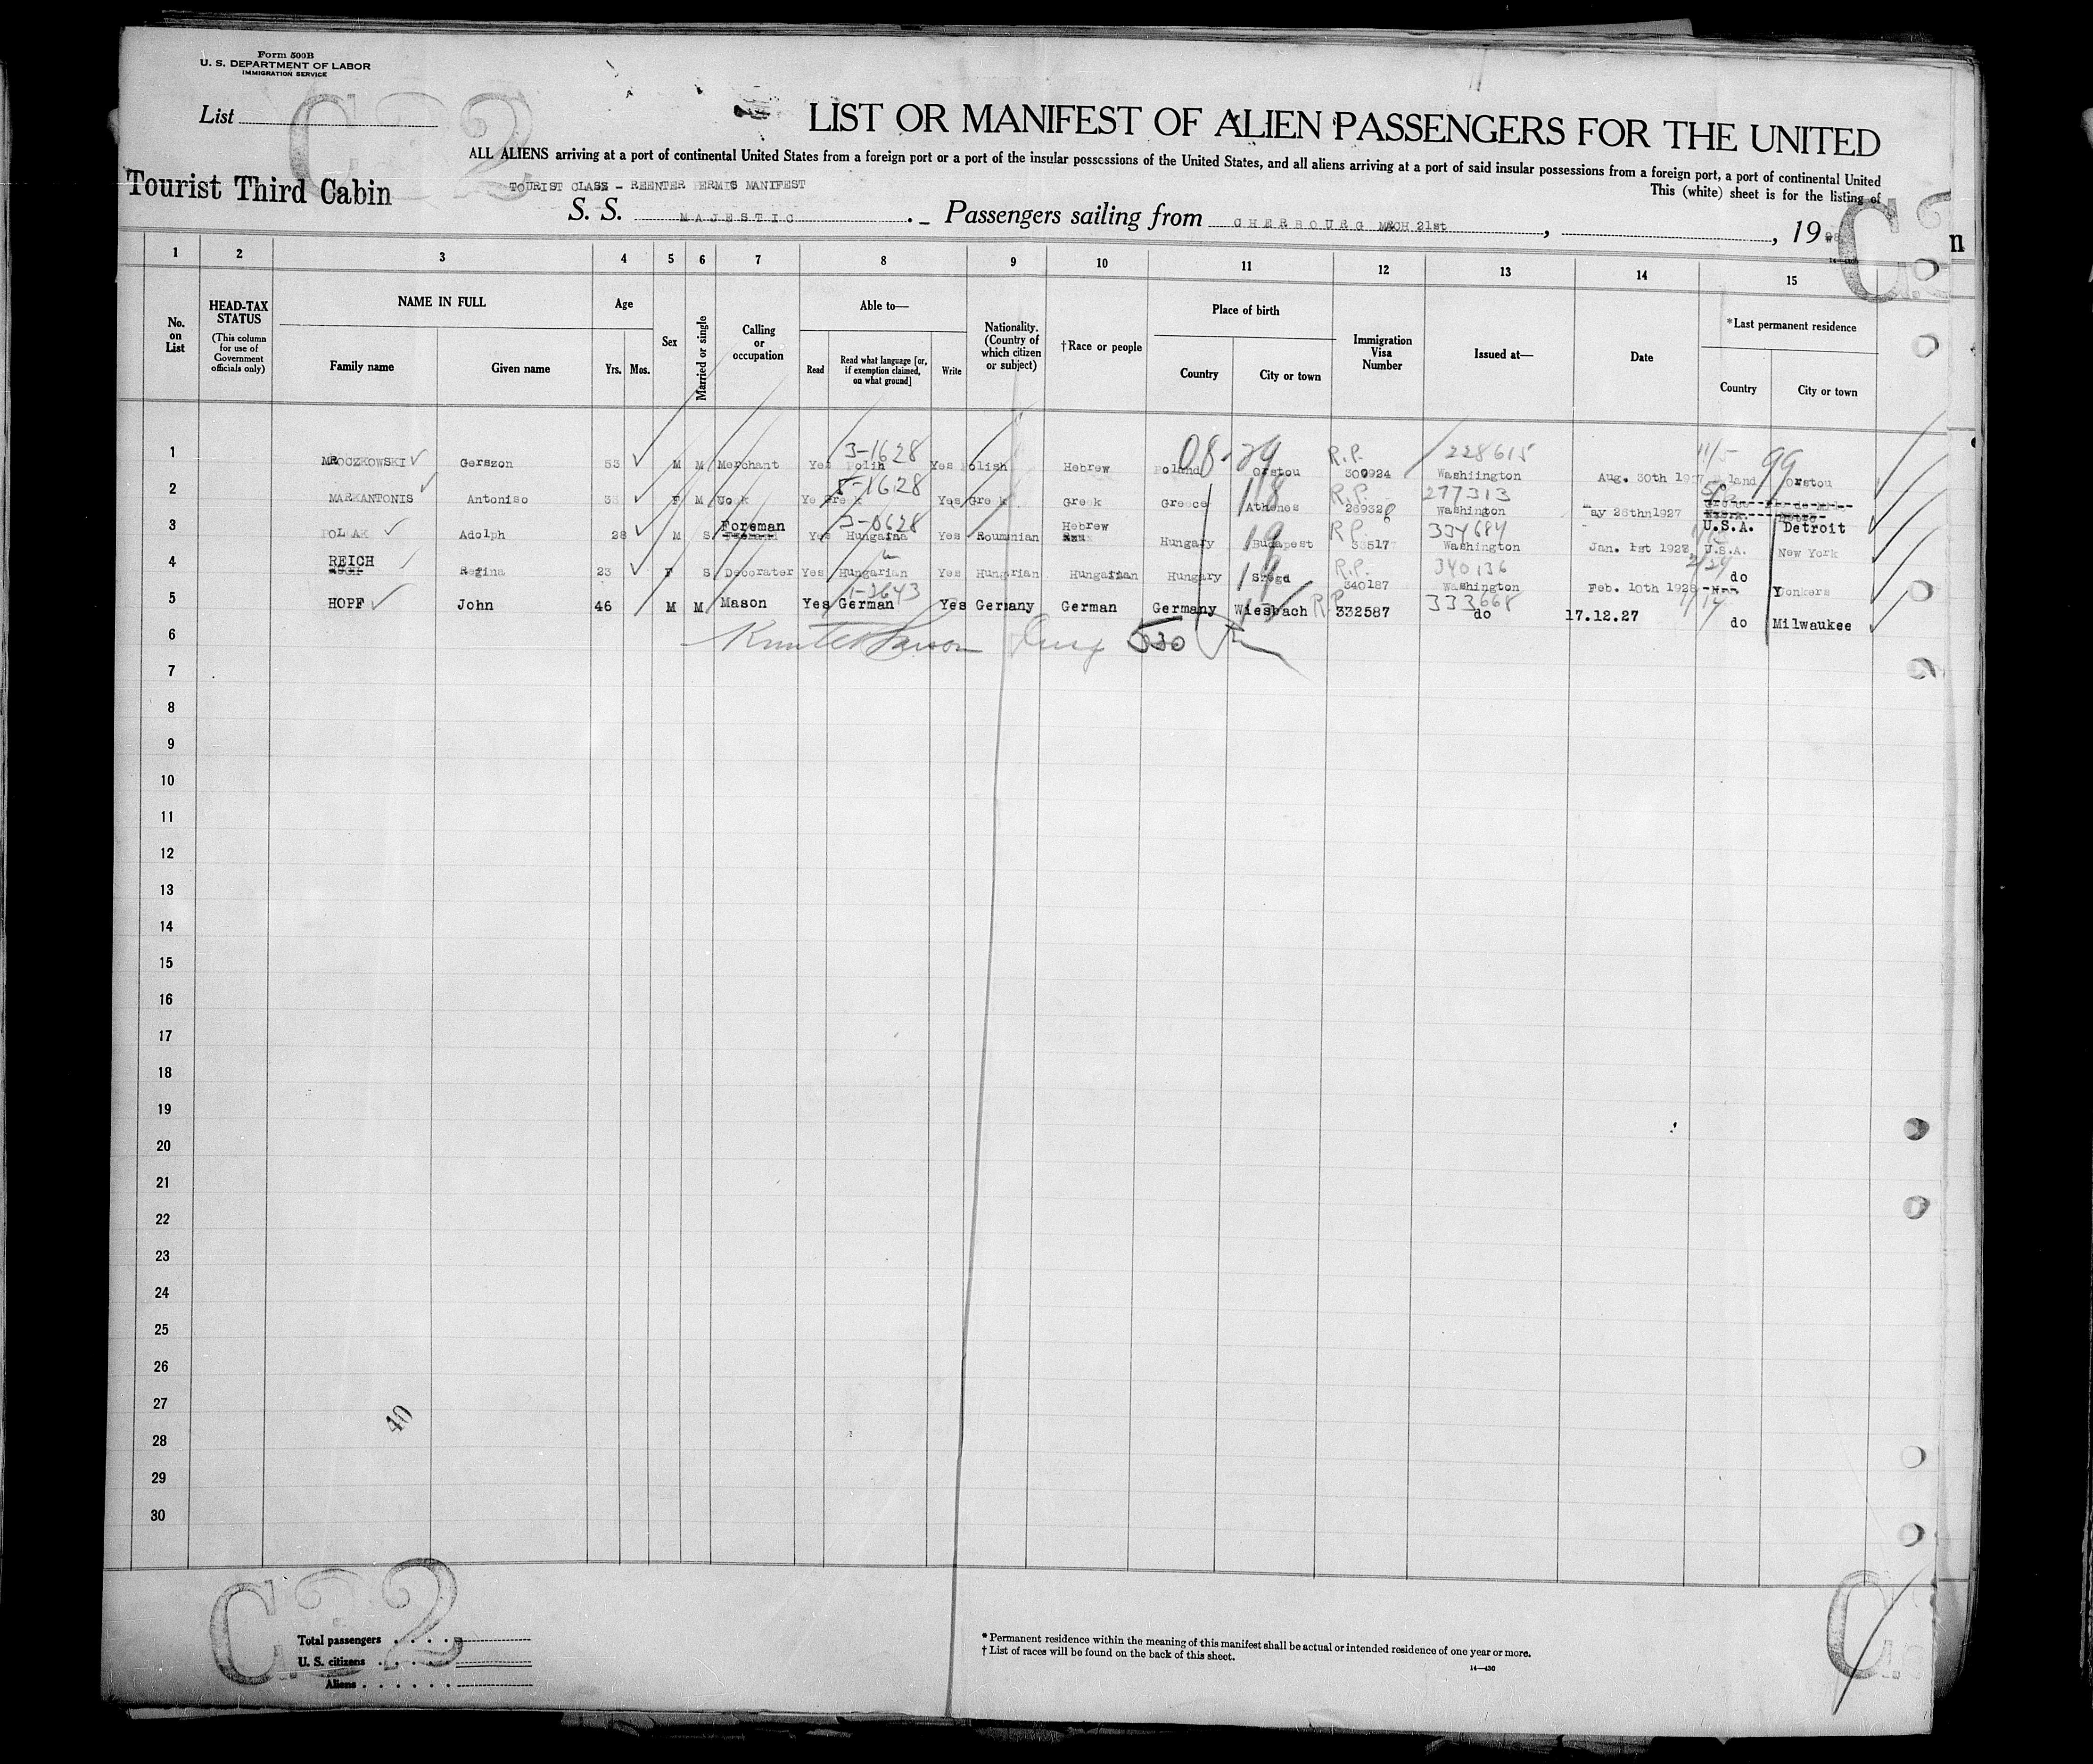 Form 500B
U. S. DEPARTMENT OF LABOR
IMMIGRATION SERVICE
List
LIST OR MANIFEST OF ALIEN PASSENGERS FOR THE UNITED
ALL ALIENS arriving at a port of continental United States from a foreign port or a port of the insular possessions of the United States, and all aliens arriving at a port of said insular possessions from a foreign port, a port of continental United
This (white) sheet is for the listing of
Tourist Third Cabin
TOURIST CLASS - REENTER PERMIS MANIFEST
S. S. MAJESTIC Passengers sailing from CHERBOURG MRCH 21st , , 19
1 2 3 4 5 6 7 8 9 10 11 12 13 14 15
No. on List
HEAD-TAX STATUS
(This column for use of Government officials only)
NAME IN FULL
Family name Given name
Age
Yrs. Mos.
Sex
Married or single
Calling or occupation
Able to—
Read
Read what language [or, if exemption claimed, on what ground]
Write
Nationality. (Country of which citizen or subject)
†Race or people
Place of birth
Country City or town
Immigration Visa Number
Issued at—
Date
*Last permanent residence
Country City or town
3-1628 08-29 R.P. 228615 11/5 99
1 MROCZKOWSKI Gerszon 53 M M Merchant Yes Polih Yes Polish Hebrew Poland Orstou 300924 Washiington Aug. 30th 1927 land Orstou
5-1628 18 R.P. 277313
2 MARKANTONIS Antoniso M Yes Greek Greek Greece Athenes Washington ay 26thn1927
3-0628 19 R.P. 334684 U.S.A. Detroit
3 POLAK Adolph 28 M S Foreman Yes Hungarina Yes Roumnian Hebrew Hungary Budapest Washington Jan. 1st 1928 U.S.A. New York
R.P. 340136 2/24
4 REICH Regina 23 F S Decorater Yes Hungarian Yes Hungarian Hungarian Hungary 340187 Washington Feb. 10th 1928 do Yonkers
1-2643 R.P. 333668
5 HOPF John 46 M M Mason Yes German Yes Germany German Germany Wiesbach 332587 do 17.12.27 do Milwaukee
6 530
7
8
9
10
11
12
13
14
15
16
17
18
19
20
21
22
23
24
25
26
27
28
29
30
40
C22
Total passengers
U. S. citizens
Aliens
* Permanent residence within the meaning of this manifest shall be actual or intended residence of one year or more.
† List of races will be found on the back of this sheet.
14—430